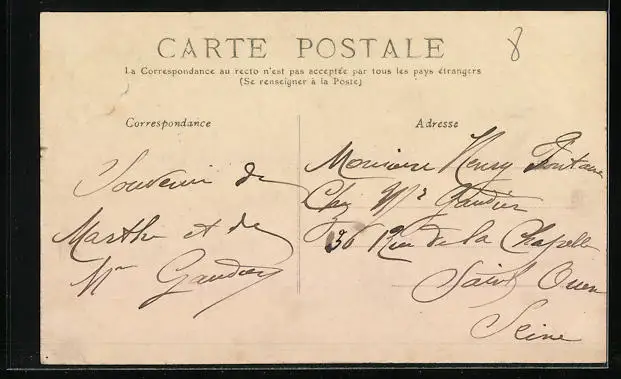 8
CARTE POSTALE
La Correspondance au recto n'est pas acceptée par tous les pays étrangers
(Se renseigner à la Poste)
Correspondance
Adresse
Souvenir de
Marthe et de
Mr Gaudier
Monsieur Henry Fontaine
Chez Mr Gaudier
36 Rue de la Chapelle
Saint Ouen
Seine